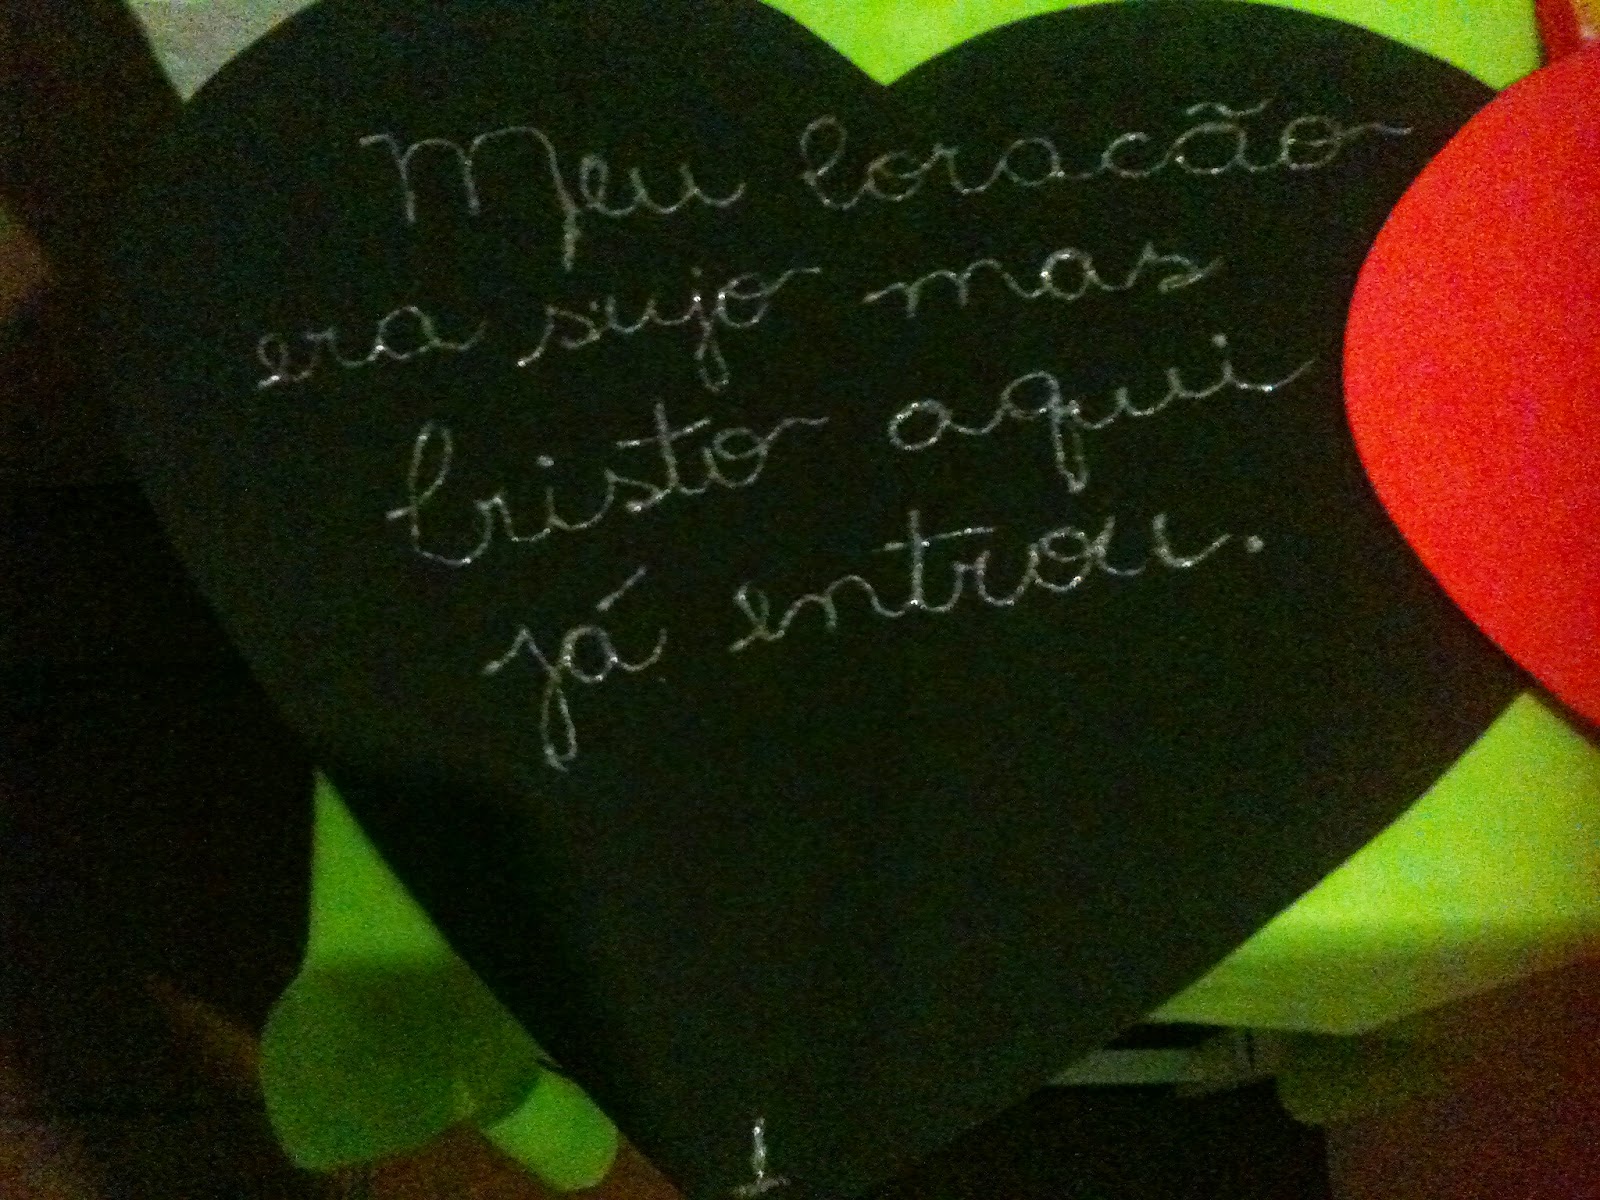 Meu Coracão
era sujo mas
Cristo aqui
já entrou.
1